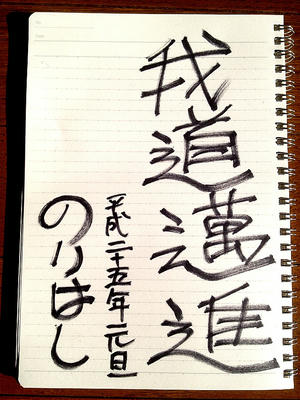 我道邁進
平成二十五年元旦
のりはし